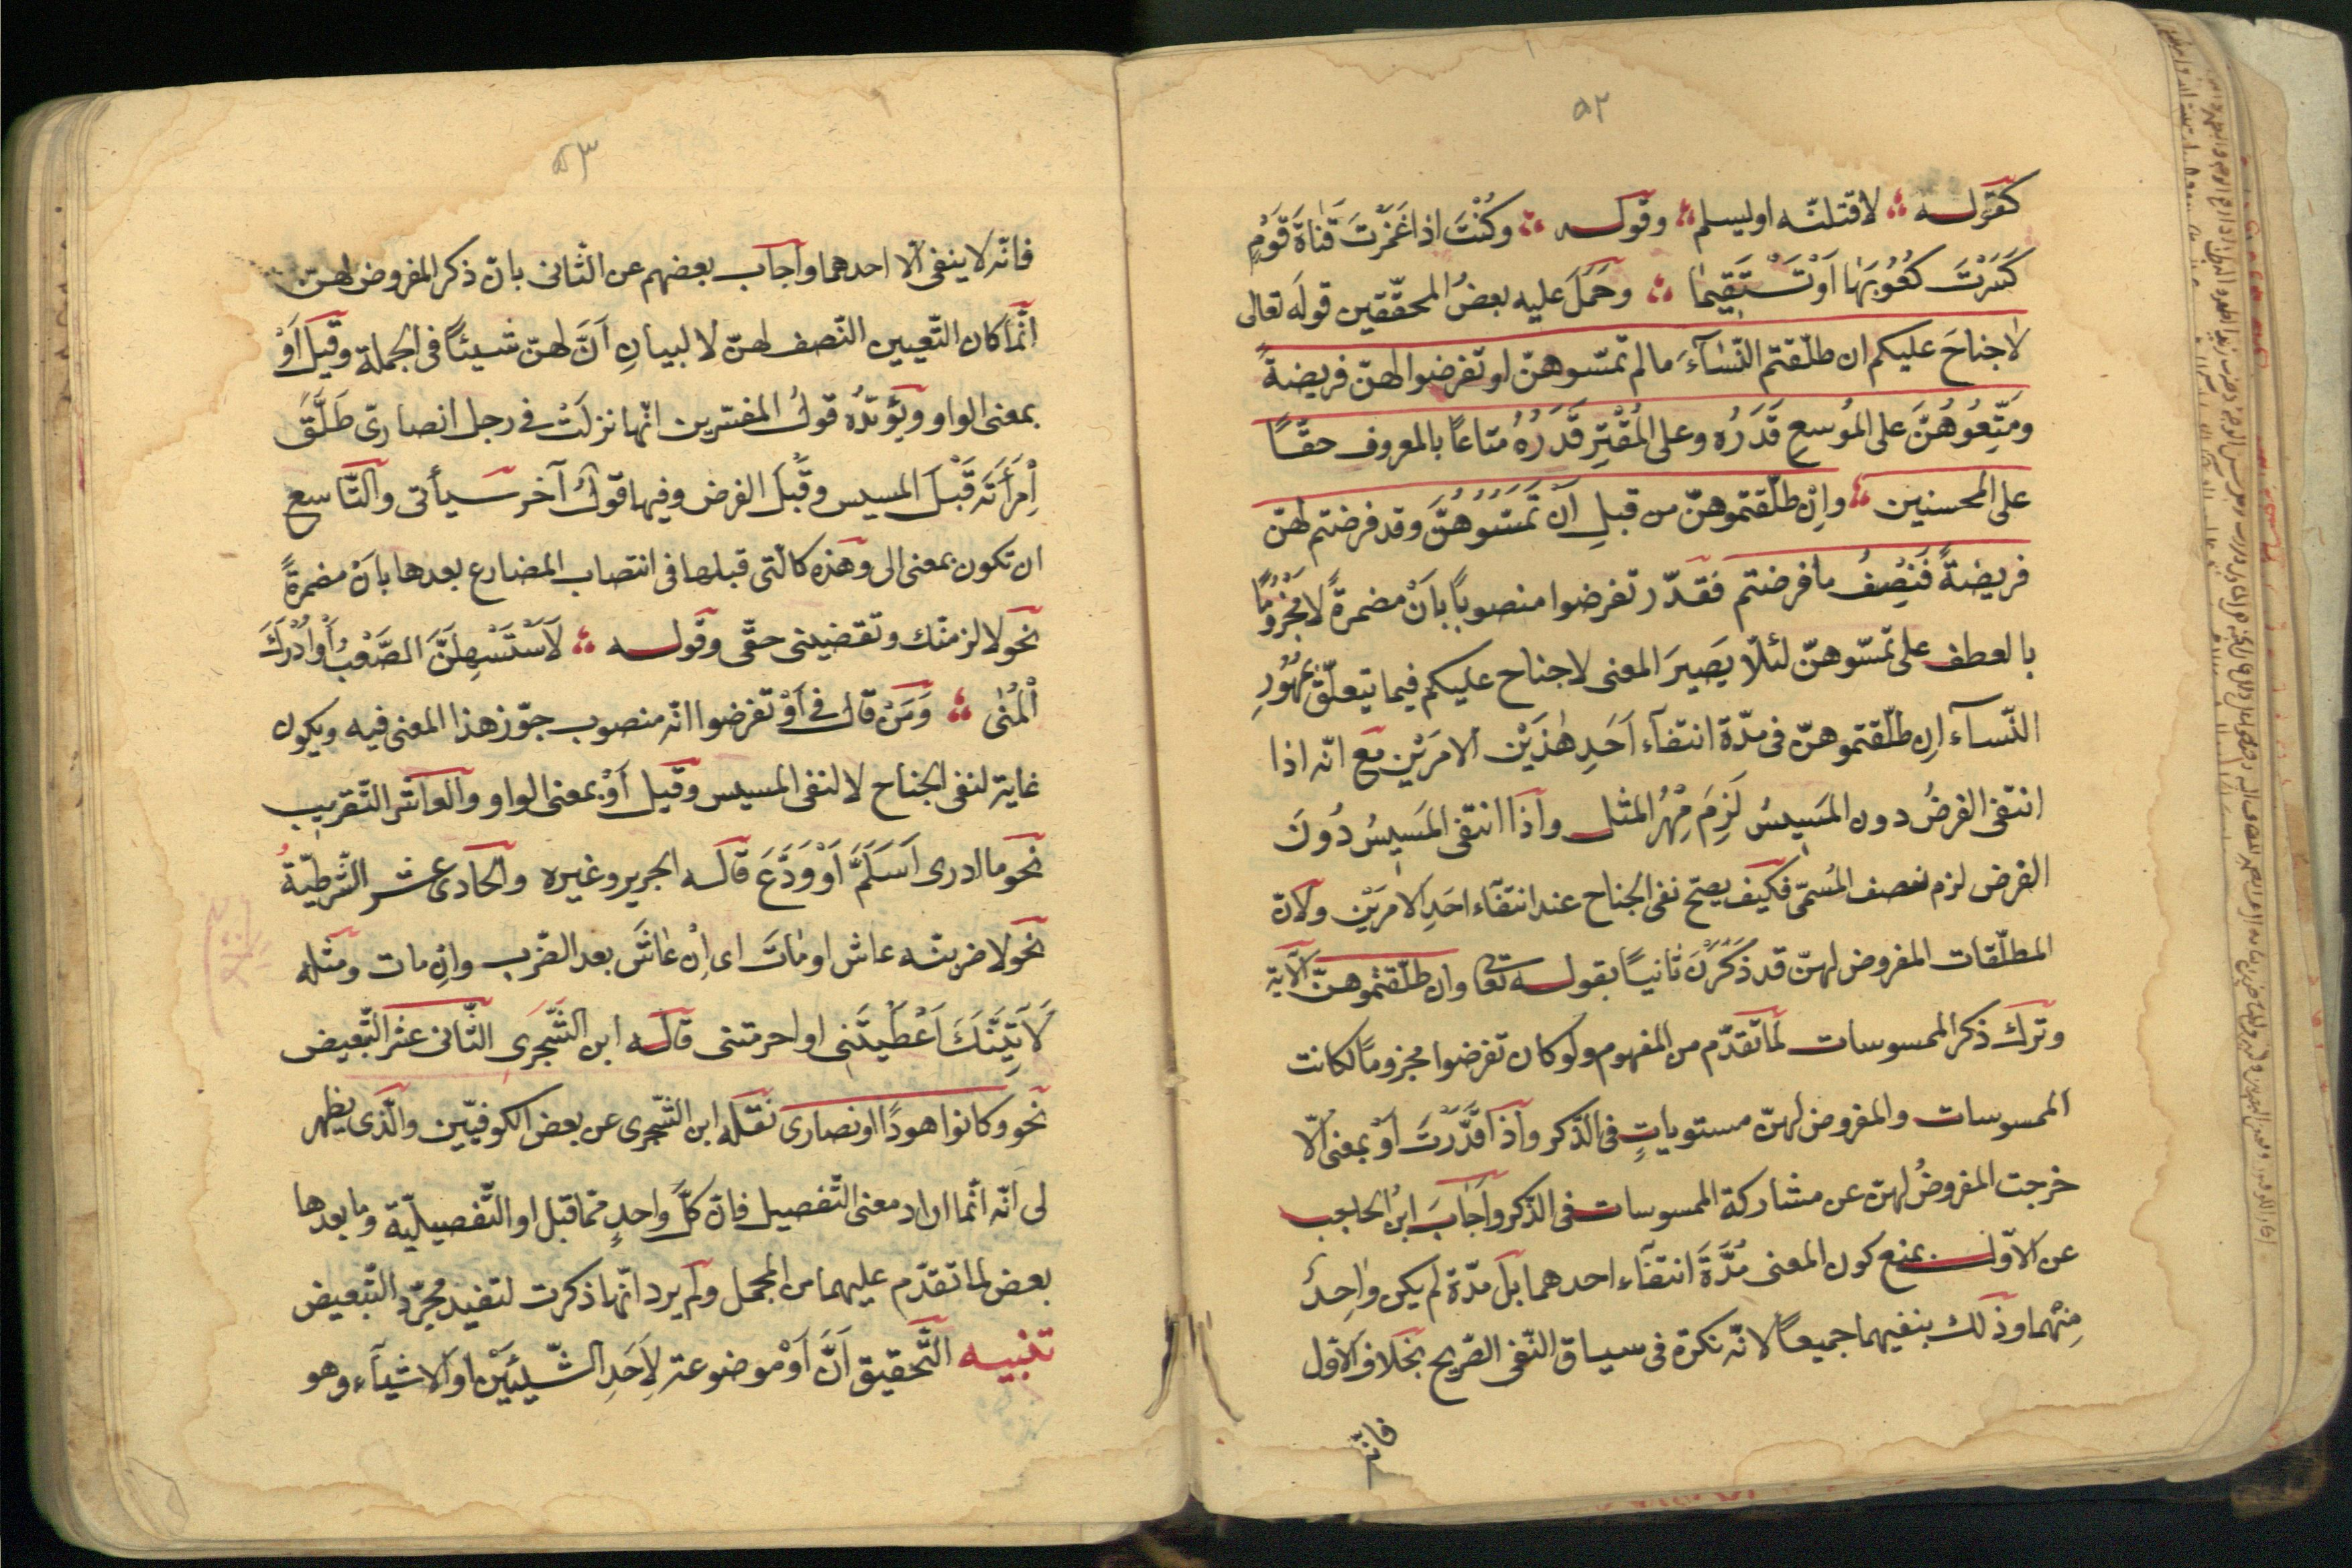 ٥٢
كقوله لاقتلنّه او ليسلم وقوله وكُنْتُ اذا غَمَزْتُ قَنَاةَ قَوْمٍ
كَسَرْتُ كُعُوبَهَا اَوْ تَسْتَقِيمَا وحَمَلَ عليه بعضُ المحقّقين قولَه تعالى
لا جناحَ عليكم ان طلّقتم النّسآءَ ما لم تمسّوهنّ او تفرضوا لهنّ فريضةً
وَمَتِّعُوهُنَّ على المُوسِعِ قَدَرُهُ وعلى المُقْتِرِ قَدَرُهُ متاعاً بالمعروف حقّاً
على المحسنين وانْ طلّقتموهنّ من قبلِ اَنْ تَمَسُّوهُنَّ وقد فرضتم لهنّ
فريضةً فَنِصْفُ ما فرضتم فقدّر تفرضوا منصوباً بانْ مضمرةً لا مجزومًا
بالعطف على تمسّوهنّ لئلّا يَصِيرَ المعنى لا جناح عليكم فيما يتعلّق بِمُهُورِ
النّسآء ان طلّقتموهنّ فى مدّة انتفآء اَحَدِ هٰذَيْن الامرَيْنِ مع انّه اذا
انتفى الفرضُ دون المَسِيسُ لَزِمَ مِهْرُ المثل واذا انتفى المَسِيسُ دُونَ
الفرض لزم نصف المُسمّى فكيف يصحّ نفى الجناح عند انتفآء احَدِ الامرَيْن ولانّ
المطلّقات المفروض لهنّ قد ذُكِرْنَ ثانيًا بقوله تعا وان طلّقتموهنّ الآية
وترك ذكر الممسوسات لما تقدّم من المفهوم ولو كان تفرضوا مجزومًا لكانت
الممسوسات والمفروض لهنّ مستوياتٍ فى الذّكر واذا قَدَّرْتَ اوْ بمعنى الّا
خرجت المفروضُ لهنّ عن مشاركة الممسوسات فى الذّكر وَاَجَابَ ابنُ الحاجب
عن الاوّل بمنع كون المعنى مُدَّةَ انتفآء احدهما بل مدّة لم يكن واحِدٌ
مِنْهُما وذلك بنفيهما جميعاً لانّه نكرة فى سياق النّفى الصّريح بخلاف الاوّل
فانّه
٥٣
فانّه لا ينفى الّا احدهما واجاب بعضهم عن الثّانى بانّ ذكر المفروض لهنّ
انّما كان لتّعيين النّصف لهنّ لا لبيانِ اَنَّ لهنّ شيئاً فى الجملة وقيل اَوْ
بمعنى الواو ويُؤيّدُه قولُ المفسّرين انّها نزلَتْ فى رجل انصارىّ طَلَّقَ
اِمْرَأَتَه قَبْلَ المسيس وقَبْلَ الفرض وفيها قولٌ آخر سيأتى والتّاسع
ان تكون بمعنى الى وهذه كالّتى قبلها فى انتصاب المضارع بعدها بانْ مضمرةً
نحو لالزمنّك وتقضينى حقّى وقوله لَاَسْتَسْهِلَنَّ الصَّعْبَ اَوْ اُدْرِكَ
اْلمُنٰى وَمَنْ قال فى اَوْ تفرضوا انّه منصوب جوّز هذا المعنى فيه ويكون
غاية لنفى الجناح لا لنفى المسيس وقيل اَوْ بمعنى الواو والعاشر التّقريب
نحو ما ادرى اَسَلَّمَ اَوْ وَدَّعَ قاله الحريرو غيره والحادى عشر الشّرطيّةُ
نحو لاضربنّه عاش او مٰات اى اِنْ عٰاشَ بعد الضّرب وانِ مات ومثله
لَآتِيَنَّكَ اَعْطَيْتَنى او احرمتنى قاله ابن الشّجرى الثّانى عشر التّبعيض
نحو وكانوا هودًا او نصارى نقله ابن الشّجرى عن بعض الكوفيّين والّذى يظهر
لى اَنّه انّما اراد معنى التّفصيل فانّ كلّ واحدٍ ممّا قبل او التّفصيليّة وما بعدها
بعض لما تقدّم عليهما من المجمل ولم يرد انّها ذكرت لتفيد مجرّد التّبعيض
تنبيه التّحقيق اَنَّ اَوْ موضوعة لِاَحَدِ الشّيئَيْنِ او الاشيآء وهو